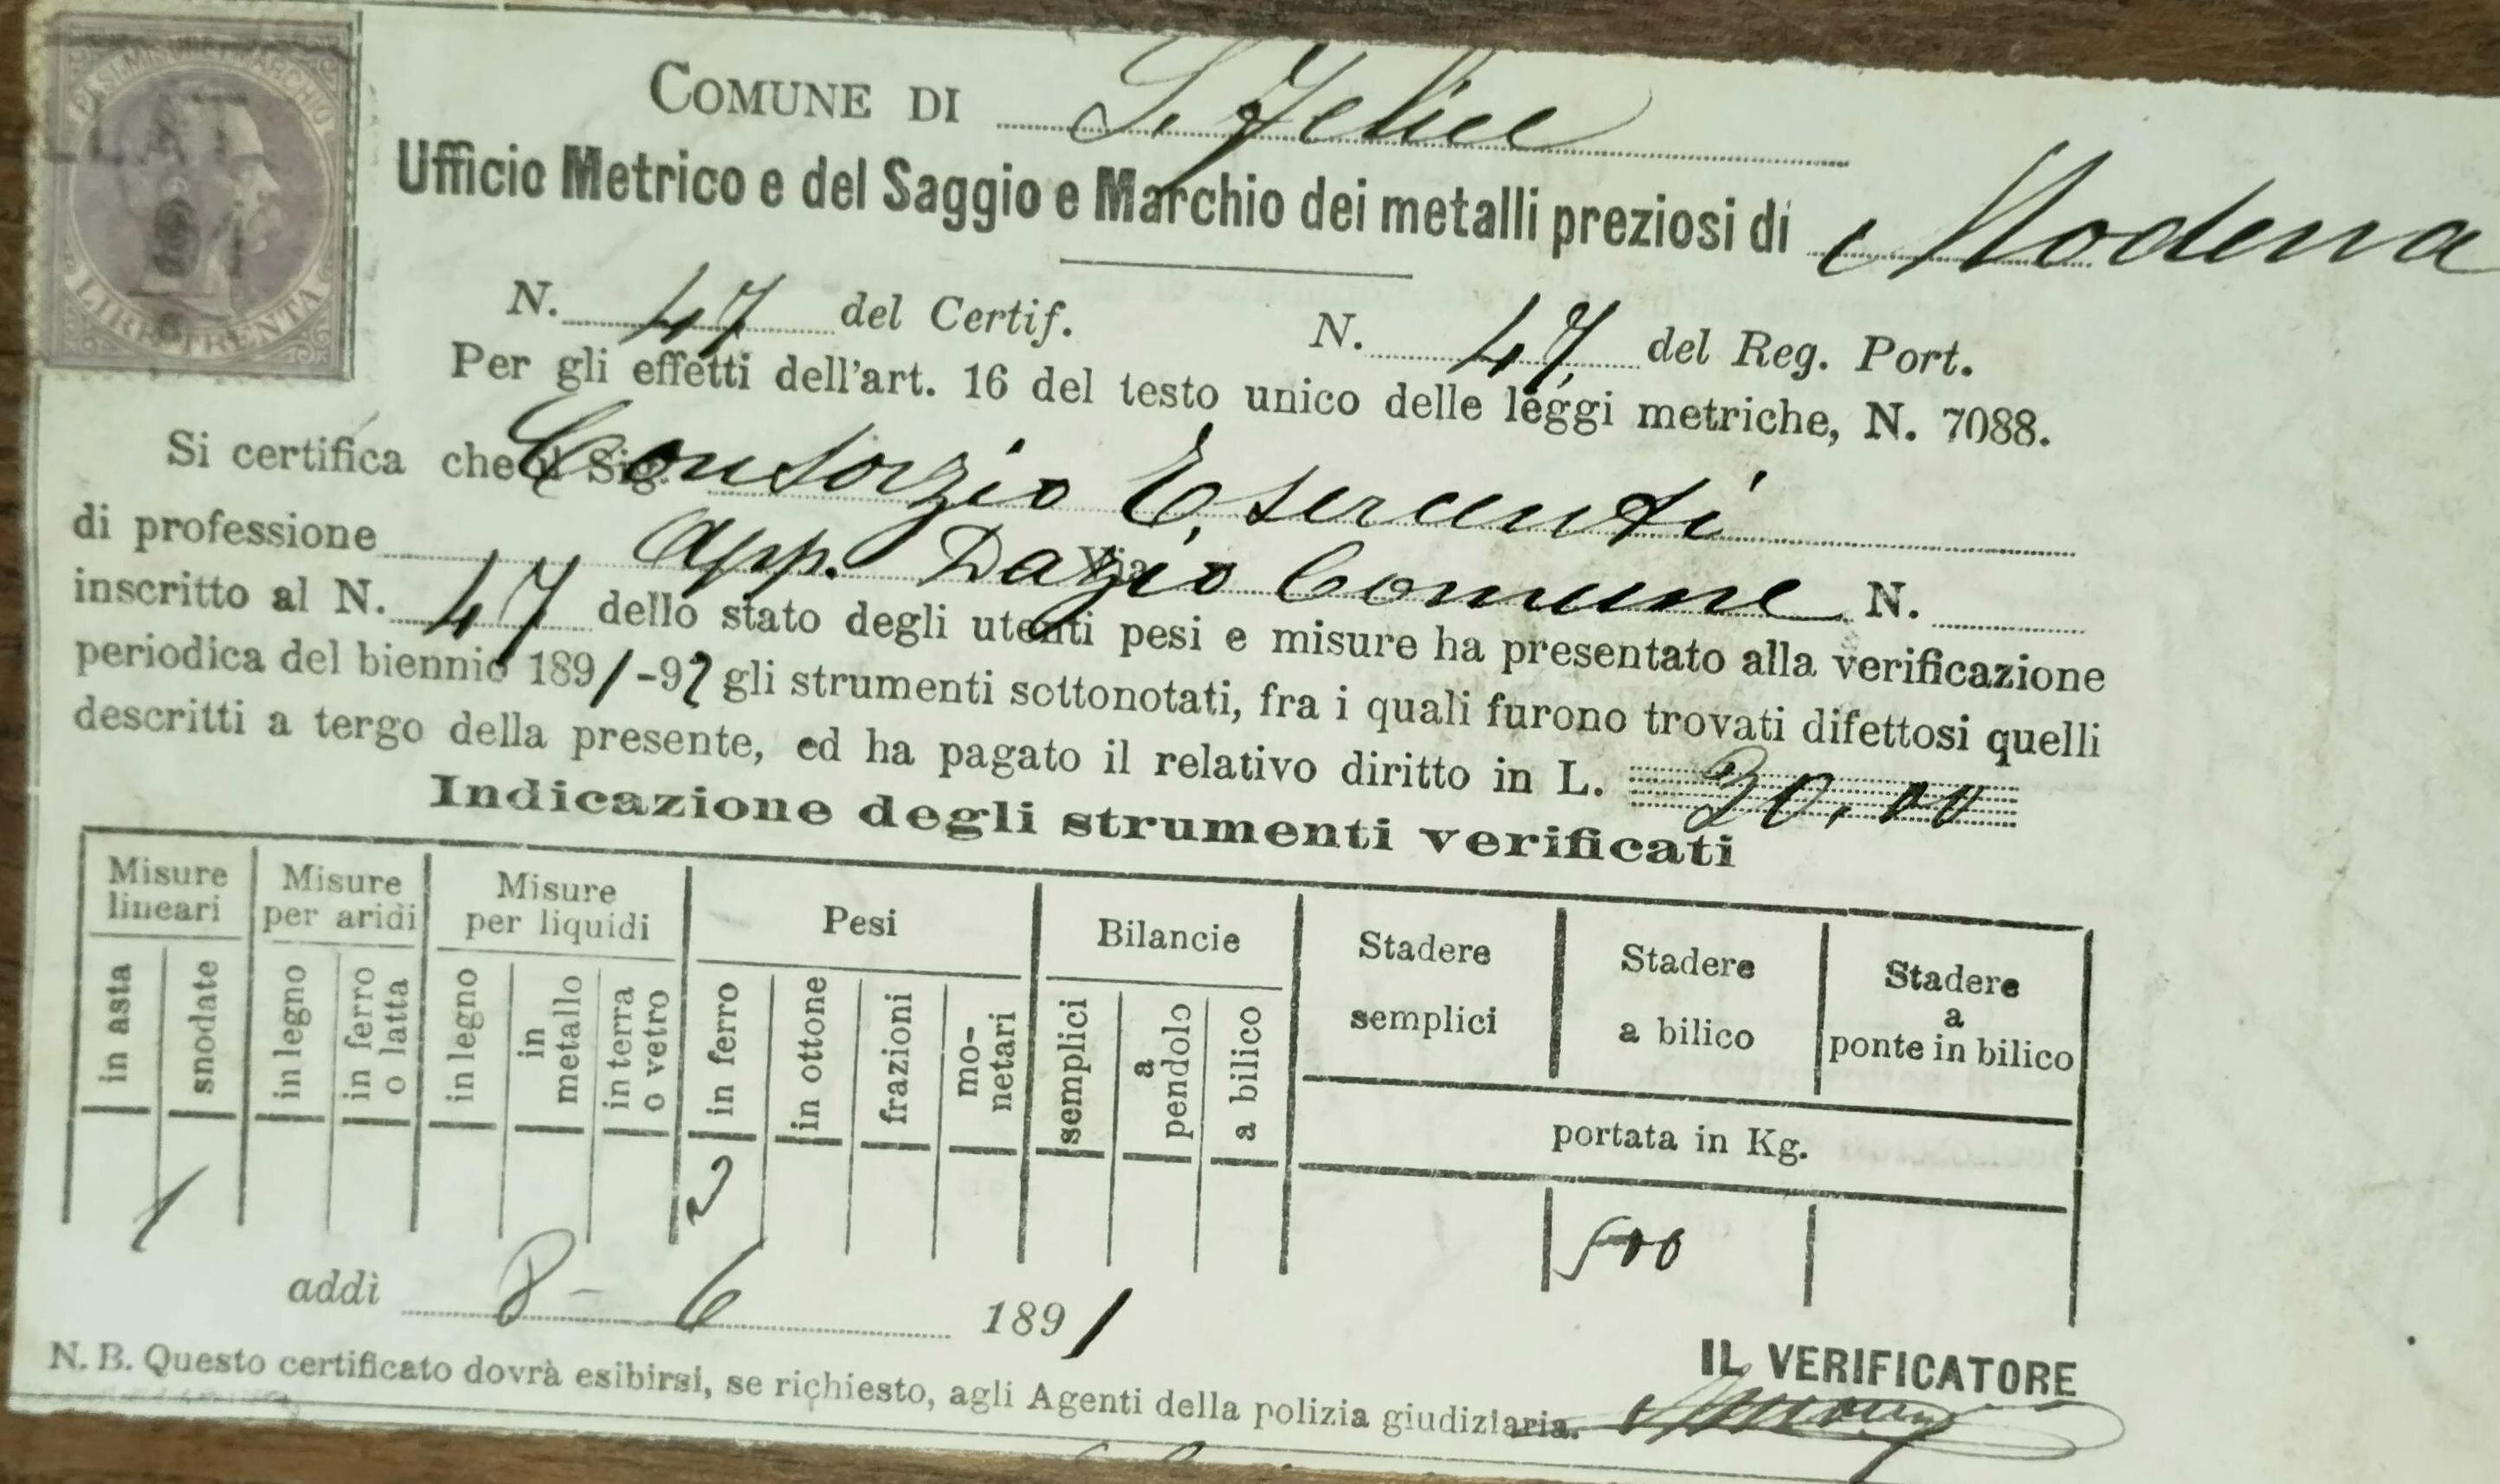 PESI MISURE E MARCHIO
LIRE TRENTA
COMUNE DI S. Felice
Ufficio Metrico e del Saggio e Marchio dei metalli preziosi di Modena
N. 47 del Certif. N. 47 del Reg. Port.
Per gli effetti dell'art. 16 del testo unico delle leggi metriche, N. 7088.
Si certifica che il Sig. Consorzio Esercenti
di professione App. Dazio Comune Via N.
inscritto al N. 47 dello stato degli utenti pesi e misure ha presentato alla verificazione
periodica del biennio 1891-92 gli strumenti sottonotati, fra i quali furono trovati difettosi quelli
descritti a tergo della presente, ed ha pagato il relativo diritto in L. 30,00
Indicazione degli strumenti verificati
Misure lineari Misure per aridi Misure per liquidi Pesi Bilancie Stadere semplici Stadere a bilico Stadere a ponte in bilico
in asta snodate in legno in ferro o latta in legno in metallo in terra o vetro in ferro in ottone frazioni mo-netari semplici a pendolo a bilico
portata in Kg.
1 2 500
addì 8 - 6 1891
IL VERIFICATORE
N. B. Questo certificato dovrà esibirsi, se richiesto, agli Agenti della polizia giudiziaria.